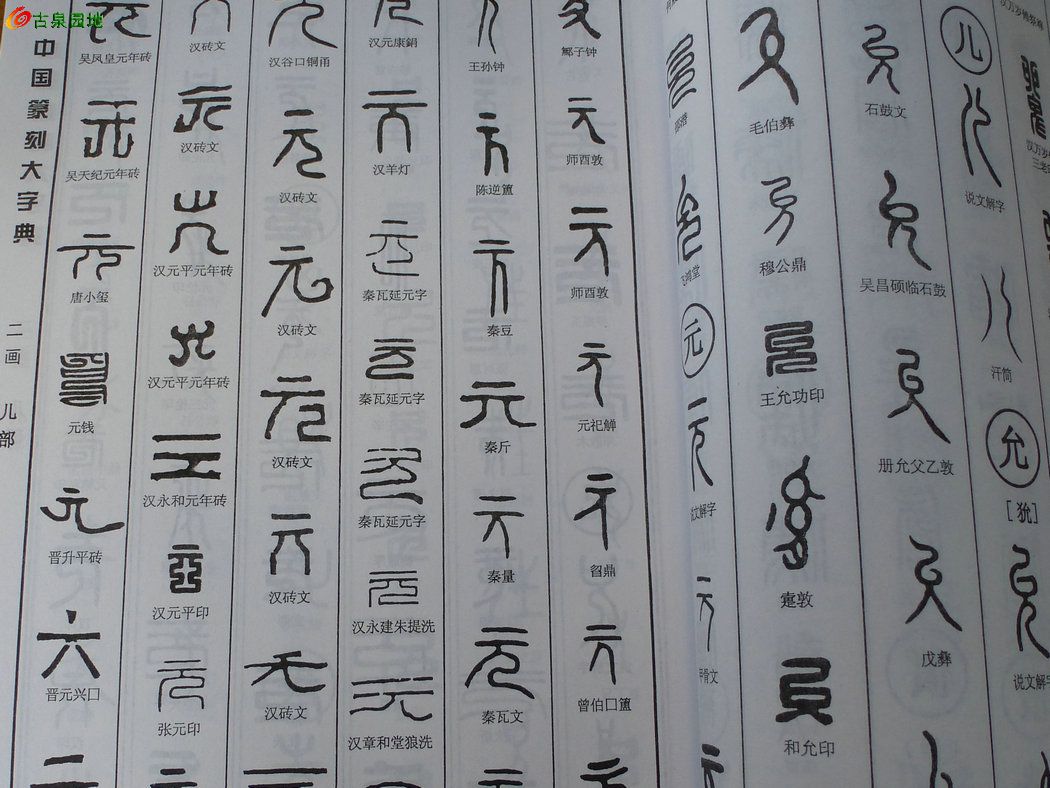 古泉园地
中国篆刻大字典
二画
儿部
儿
说文解字
汗简
允
[狁]
说文解字
石鼓文
吴昌硕临石鼓
册允父乙敦
戊彝
毛伯彝
穆公鼎
王允功印
寋敦
和允印
元
说文解字
甲骨文
郮子钟
师酉敦
师酉敦
元祀觯
曶鼎
曾伯囗簠
王孙钟
陈逆簠
秦豆
秦斤
秦量
秦瓦文
汉元康鋗
汉羊灯
秦瓦延元字
秦瓦延元字
秦瓦延元字
汉永建朱提洗
汉章和堂狼洗
汉谷口铜甬
汉砖文
汉砖文
汉砖文
汉砖文
汉砖文
汉砖文
汉砖文
汉元平元年砖
汉元平元年砖
汉永和元年砖
汉元平印
张元印
吴凤皇元年砖
吴天纪元年砖
唐小玺
元钱
晋升平砖
晋元兴囗